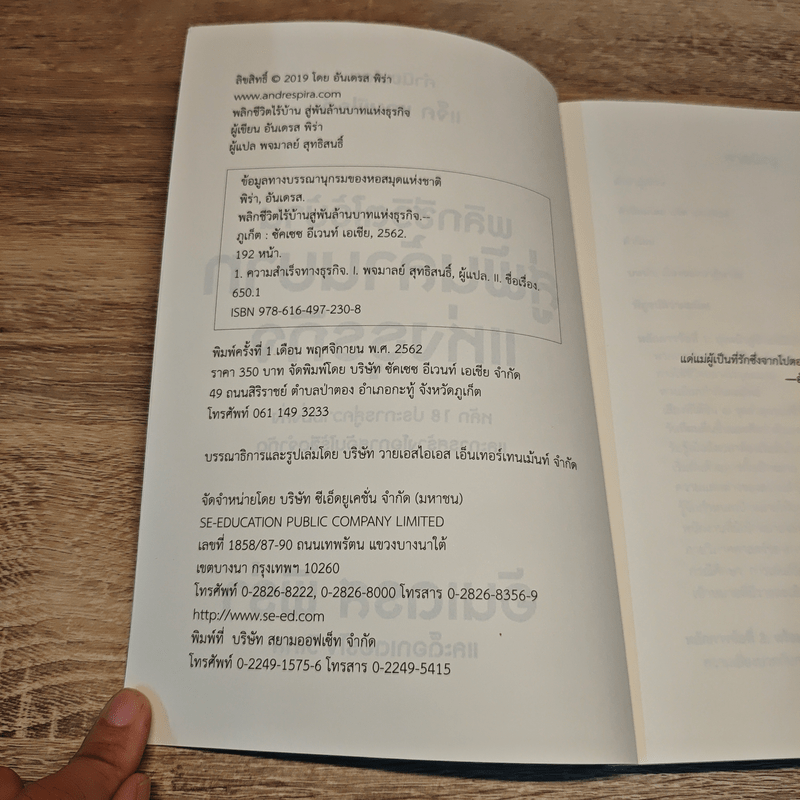 ลิขสิทธิ์ © 2019 โดย อันเดรส พิร่า
www.andrespira.com
พลิกชีวิตไร้บ้าน สู่พันล้านบาทแห่งธุรกิจ
ผู้เขียน อันเดรส พิร่า
ผู้แปล พจมาลย์ สุทธิสนธิ์
ข้อมูลทางบรรณานุกรมของหอสมุดแห่งชาติ
พิร่า, อันเดรส.
พลิกชีวิตไร้บ้านสู่พันล้านบาทแห่งธุรกิจ.--
ภูเก็ต : ซัคเซซ อีเวนท์ เอเชีย, 2562.
192 หน้า.
1. ความสำเร็จทางธุรกิจ. I. พจมาลย์ สุทธิสนธิ์, ผู้แปล. II. ชื่อเรื่อง.
650.1
ISBN 978-616-497-230-8
พิมพ์ครั้งที่ 1 เดือน พฤศจิกายน พ.ศ. 2562
ราคา 350 บาท จัดพิมพ์โดย บริษัท ซัคเซซ อีเวนท์ เอเชีย จำกัด
49 ถนนสิริราชย์ ตำบลป่าตอง อำเภอกะทู้ จังหวัดภูเก็ต
โทรศัพท์ 061 149 3233
บรรณาธิการและรูปเล่มโดย บริษัท วายเอสไอเอส เอ็นเทอร์เทนเม้นท์ จำกัด
จัดจำหน่ายโดย บริษัท ซีเอ็ดยูเคชั่น จำกัด (มหาชน)
SE-EDUCATION PUBLIC COMPANY LIMITED
เลขที่ 1858/87-90 ถนนเทพรัตน แขวงบางนาใต้
เขตบางนา กรุงเทพฯ 10260
โทรศัพท์ 0-2826-8222, 0-2826-8000 โทรสาร 0-2826-8356-9
http://www.se-ed.com
พิมพ์ที่ บริษัท สยามออฟเซ็ท จำกัด
โทรศัพท์ 0-2249-1575-6 โทรสาร 0-2249-5415
แด่แม่ผู้เป็นที่รักซึ่งจากไปตอ